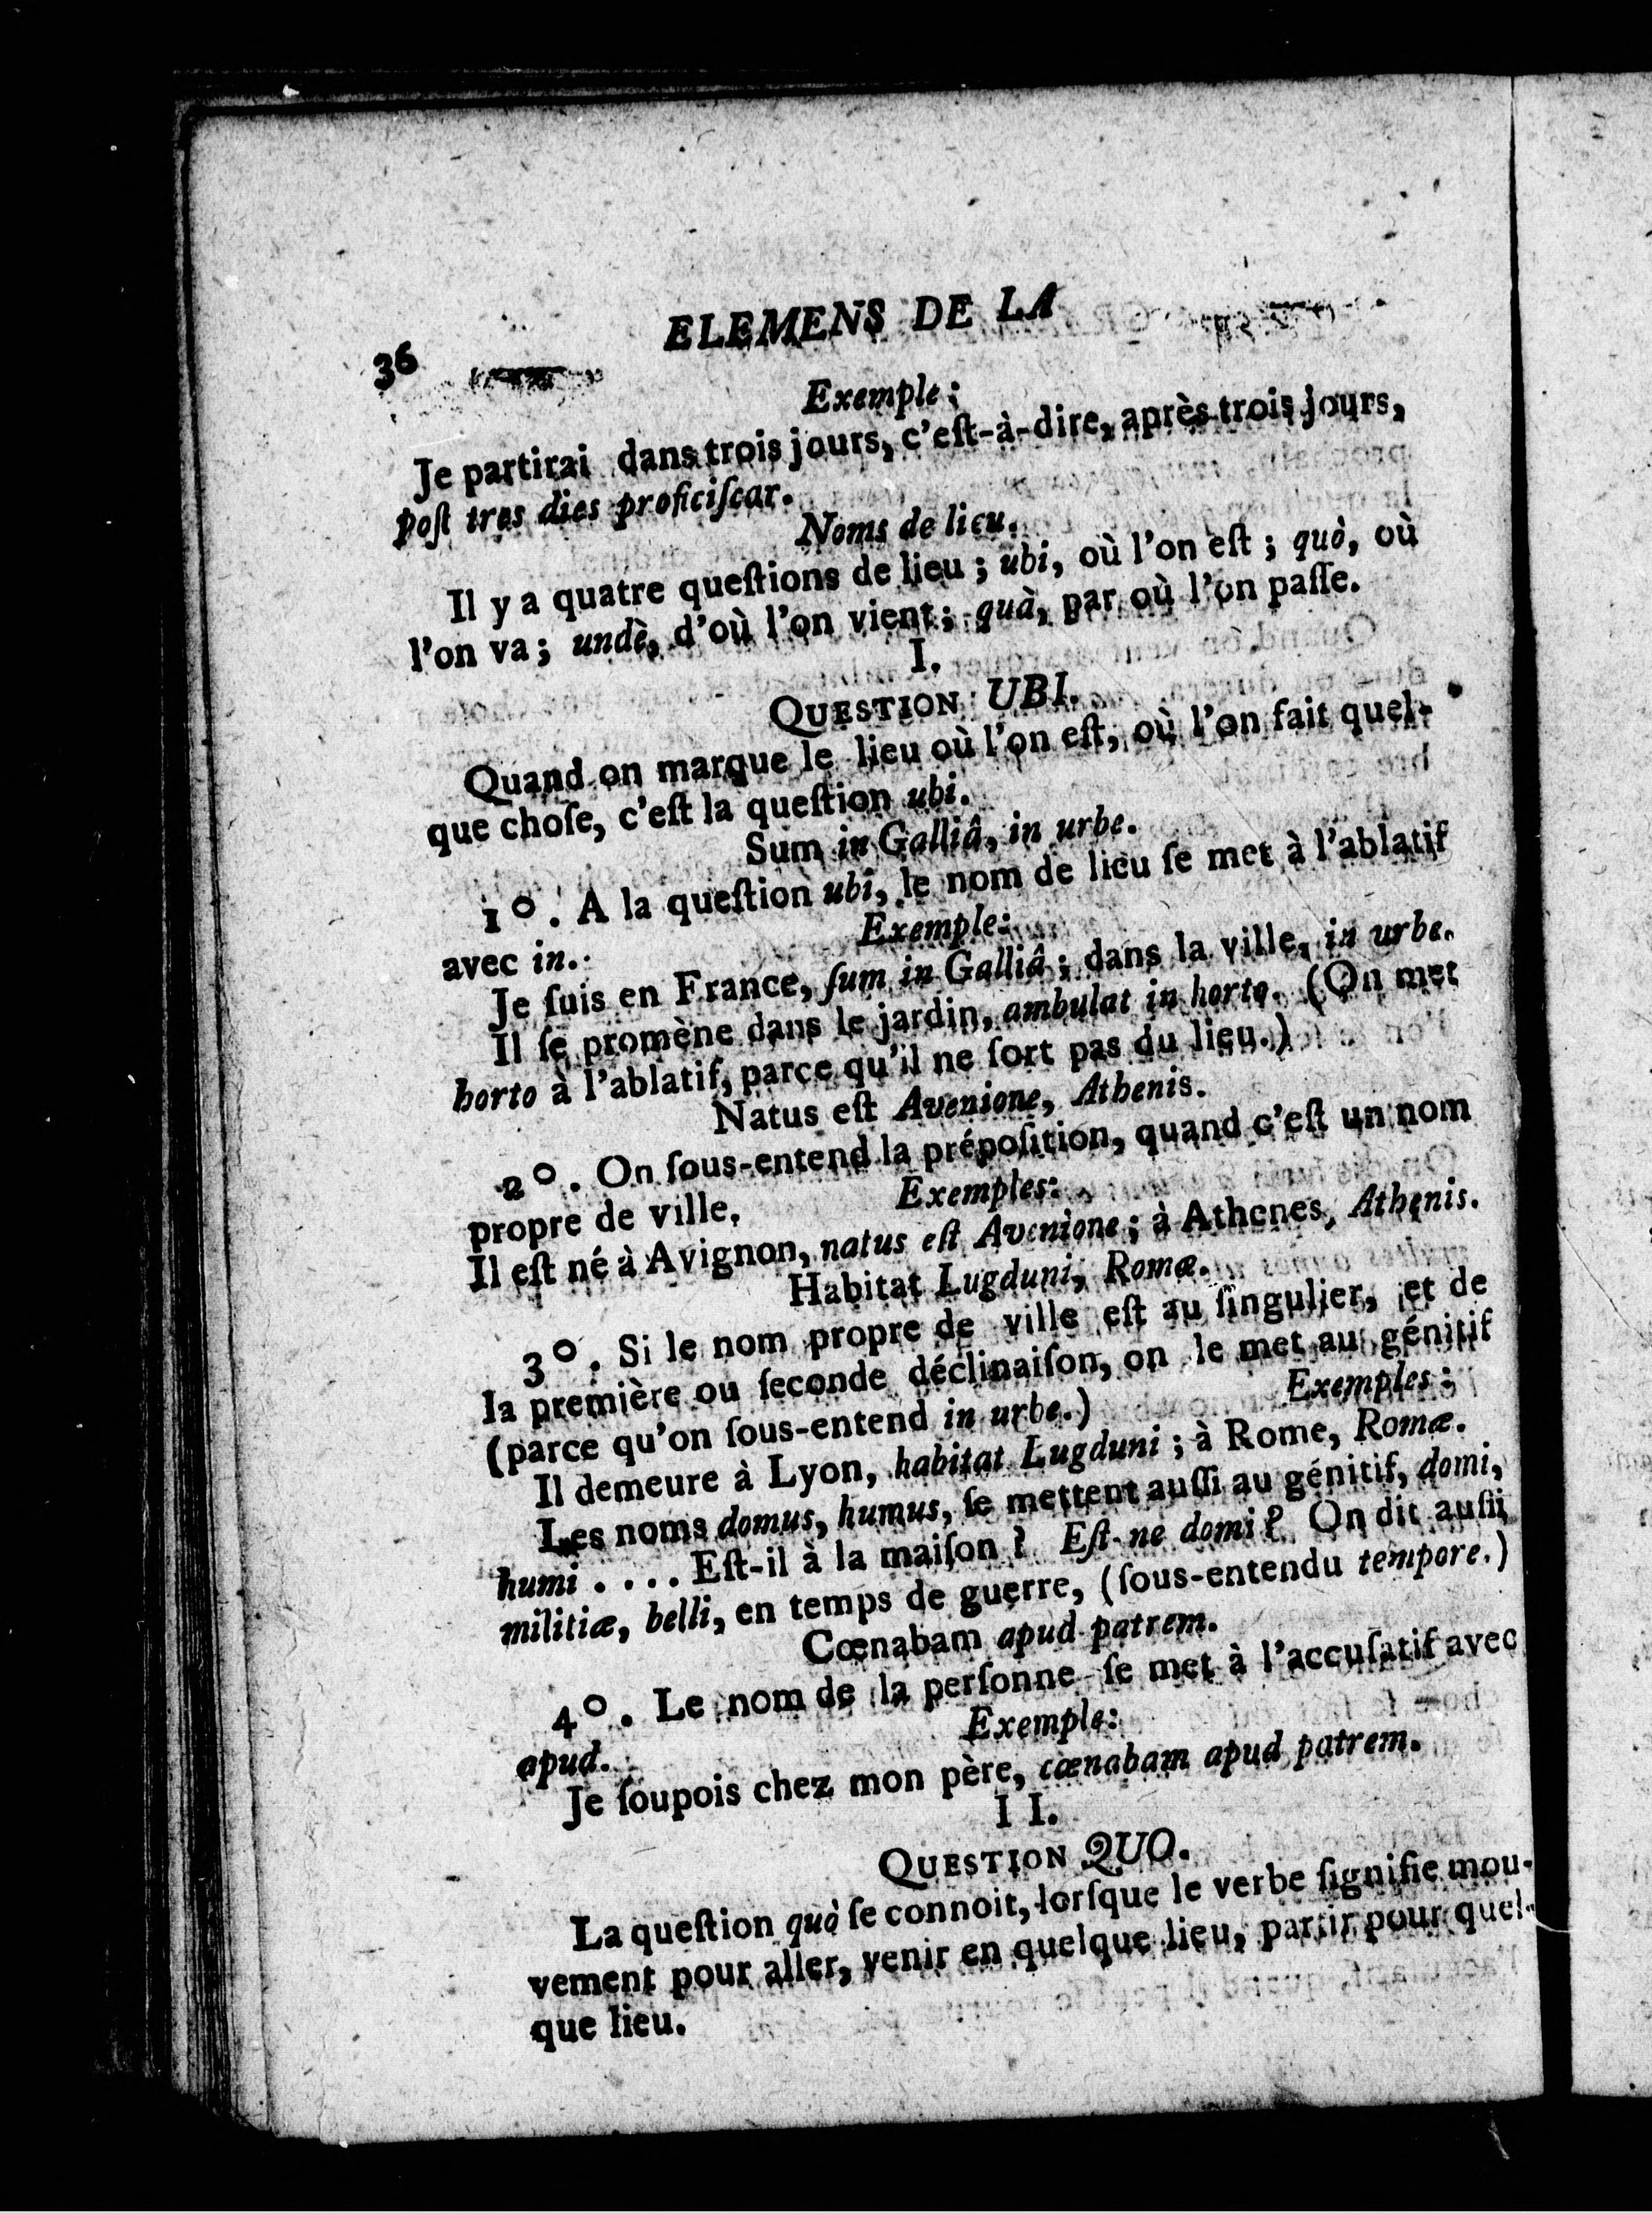 36
ELEMENS DE LA
Exemple :
Je partirai dans trois jours, c'eſt-à-dire, après trois jours,
poſt tres dies proficiſcar.
Noms de lieu.
Il y a quatre queſtions de lieu ; ubi, où l'on eſt ; quò, où
l'on va ; undè, d'où l'on vient ; quà, par où l'on paſſe.
I.
QUESTION UBI.
Quand on marque le lieu où l'on eſt, où l'on fait quel-
que choſe, c'eſt la queſtion ubi.
Sum in Galliâ, in urbe.
1º. A la queſtion ubi, le nom de lieu ſe met à l'ablatif
avec in.
Exemple:
Je ſuis en France, ſum in Galliâ ; dans la ville, in urbe.
Il ſe promène dans le jardin, ambulat in horto. (On met
horto à l'ablatif, parce qu'il ne ſort pas du lieu.)
Natus eſt Avenione, Athenis.
2º. On ſous-entend la prépoſition, quand c'eſt un nom
propre de ville.
Exemples:
Il eſt né à Avignon, natus eſt Avenione ; à Athenes, Athenis.
Habitat Lugduni, Romæ.
3º. Si le nom propre de ville eſt au ſingulier, et de
la première ou ſeconde déclinaiſon, on le met au génitif
(parce qu'on ſous-entend in urbe.)
Exemples :
Il demeure à Lyon, habitat Lugduni ; à Rome, Romæ.
Les noms domus, humus, ſe mettent auſſi au génitif, domi,
humi . . . . Eſt-il à la maiſon ? Eſt-ne domi ? On dit auſſi
militiæ, belli, en temps de guerre, (ſous-entendu tempore.)
Cœnabam apud patrem.
4º. Le nom de la perſonne ſe met à l'accuſatif avec
apud.
Exemple:
Je ſoupois chez mon père, cœnabam apud patrem.
II.
QUESTION QUO.
La queſtion quò ſe connoit, lorſque le verbe ſignifie mou-
vement pour aller, venir en quelque lieu, partir pour quel-
que lieu.